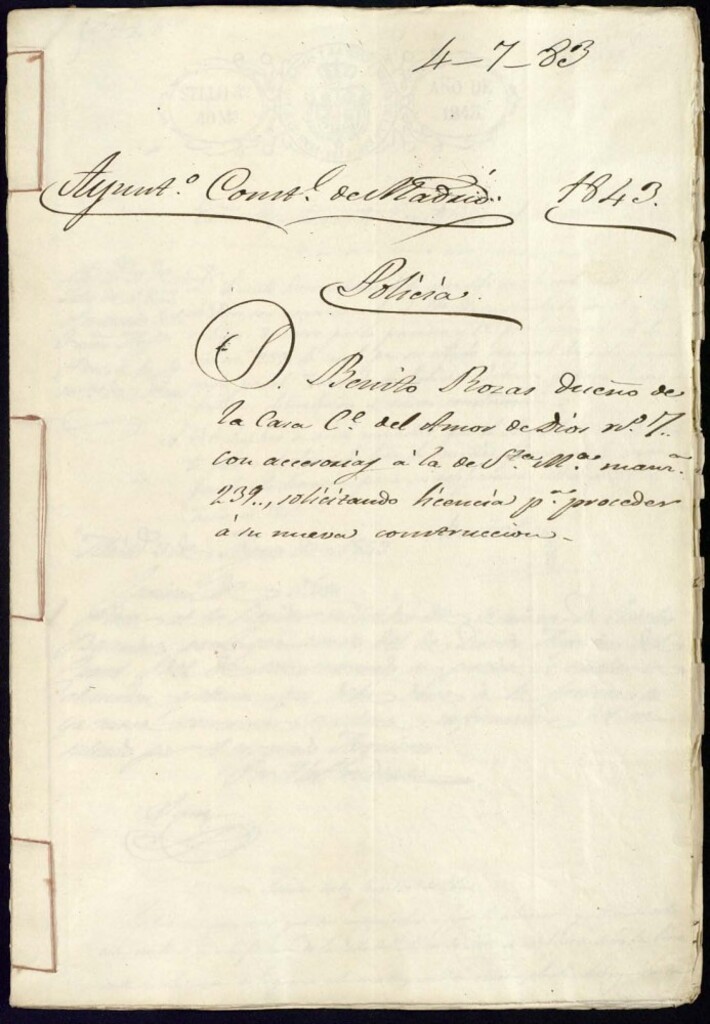 4-7-83
Ayunt.º Const.l de Madrid. 1843.
Policia.
D. Benito Rozas dueño de
la Casa C.e del Amor de Dios n.º 7..
con accesorias á la de S.ta M.a manz.a
239., solicitando licencia p.a proceder
á su nueva construccion.